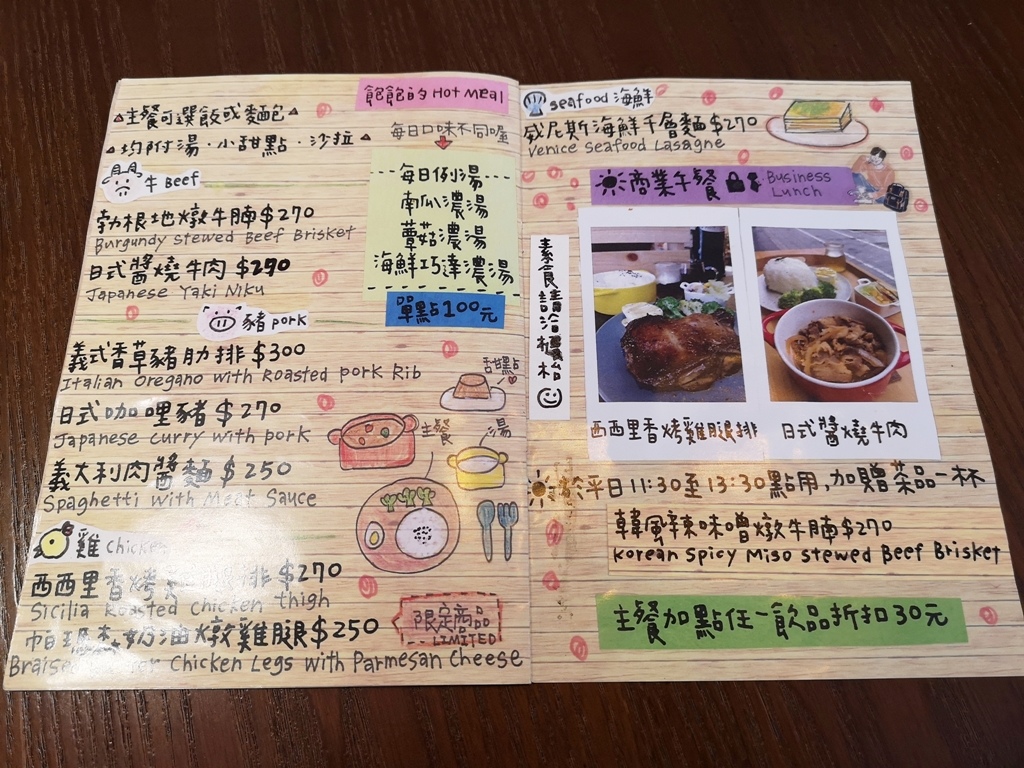 飽飽的 Hot Meal
主餐可選飯或麵包
均附湯·小甜點·沙拉
每日口味不同喔
牛 Beef
勃根地燉牛腩$270
Burgundy stewed Beef Brisket
日式醬燒牛肉 $270
Japanese Yaki Niku
每日例湯
南瓜濃湯
蘑菇濃湯
海鮮巧達濃湯
單點100元
豬 pork
義式香草豬肋排 $300
Italian Oregano with Roasted pork Rib
日式咖哩豬 $270
Japanese curry with pork
義大利肉醬麵 $250
Spaghetti with Meat Sauce
甜點
主餐
湯
雞 Chicken
西西里香烤 腿排 $270
Sicilia Roasted Chicken thigh
帕瑪森奶油燉雞腿$250
Braised Chicken Legs with Parmesan Cheese
限定商品
LIMITED
seafood 海鮮
威尼斯海鮮千層麵 $270
Venice Seafood Lasagne
商業午餐
Business
Lunch
素食請洽櫃枱
西西里香烤雞腿排
日式醬燒牛肉
平日11:30至13:30點用,加贈菜品一杯
韓風辣味噌燉牛腩$270
Korean Spicy Miso stewed Beef Brisket
主餐加點任一飲品折扣30元